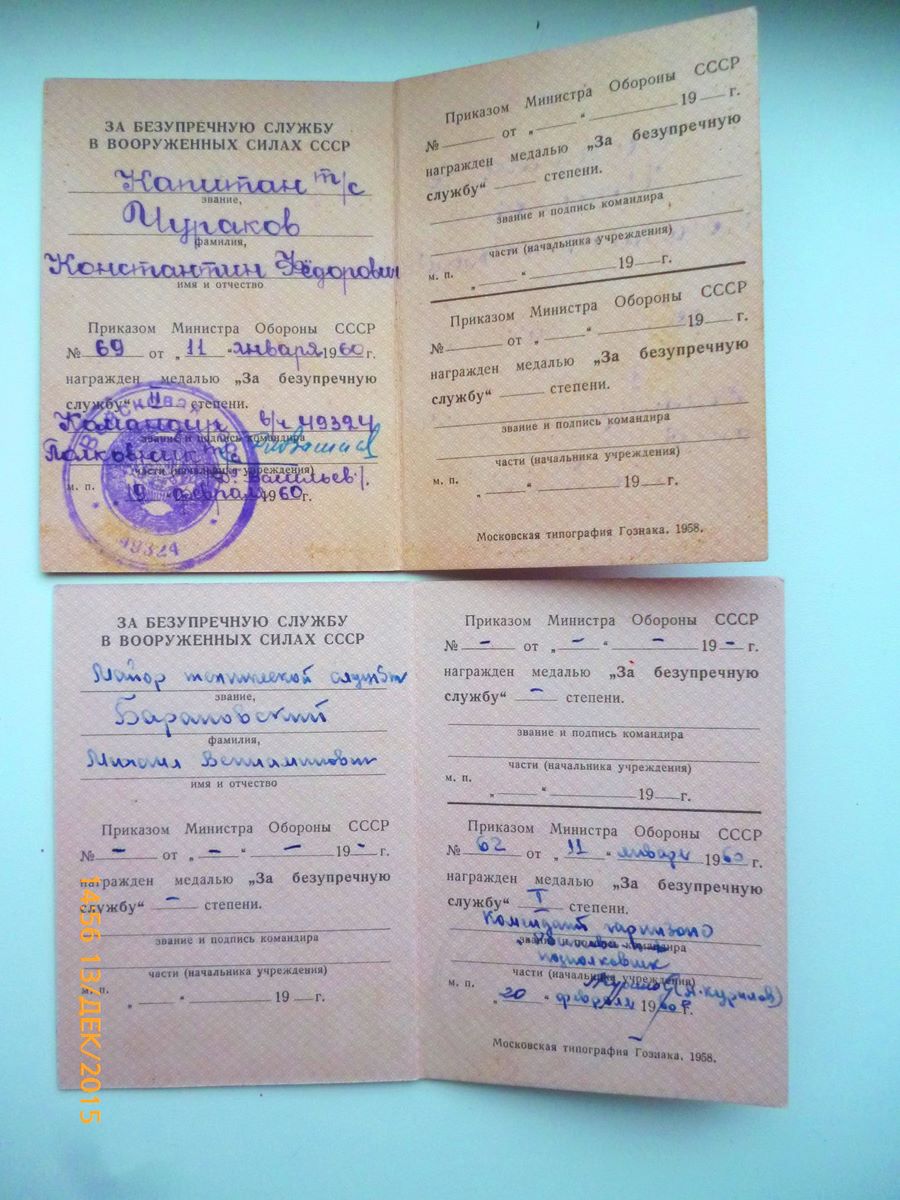 ЗА БЕЗУПРЕЧНУЮ СЛУЖБУ
В ВООРУЖЕННЫХ СИЛАХ СССР
Капитан т/с
звание,
Чураков
фамилия,
Константин Фёдорович
имя и отчество
Приказом Министра Обороны СССР
№ 69 от „11" января 1960 г.
награжден медалью „За безупречную
службу" II степени.
Командир в/ч 49324
звание и подпись командира
Полковник т/с
части (начальника учреждения)
Васильев/.
м. п. „19" февраля 1960 г.
Войсковая
49324
Приказом Министра Обороны СССР
№ от „ " 19 г.
награжден медалью „За безупречную
службу" степени.
звание и подпись командира
части (начальника учреждения)
м. п. „ " 19 г.
Приказом Министра Обороны СССР
№ от „ " 19 г.
награжден медалью „За безупречную
службу" степени.
звание и подпись командира
части (начальника учреждения)
м. п. „ " 19 г.
Московская типография Гознака. 1958.
ЗА БЕЗУПРЕЧНУЮ СЛУЖБУ
В ВООРУЖЕННЫХ СИЛАХ СССР
Майор технической службы
звание,
Барановский
фамилия,
Михаил Вениаминович
имя и отчество
Приказом Министра Обороны СССР
№ – от „ – " – 19 – г.
награжден медалью „За безупречную
службу" – степени.
звание и подпись командира
части (начальника учреждения)
м. п. „ " 19 г.
Приказом Министра Обороны СССР
№ – от „ – " – 19 – г.
награжден медалью „За безупречную
службу" – степени.
звание и подпись командира
части (начальника учреждения)
м. п. „ " 19 г.
Приказом Министра Обороны СССР
№ 62 от „11" января 1960 г.
награжден медалью „За безупречную
службу" I степени.
Комендант гарнизона
звание и подпись командира
подполковник
части (начальника учреждения)
(Н. Курилов)
м. п. „20" февраля 1960 г.
Московская типография Гознака. 1958.
1456 13/ДЕК/2015